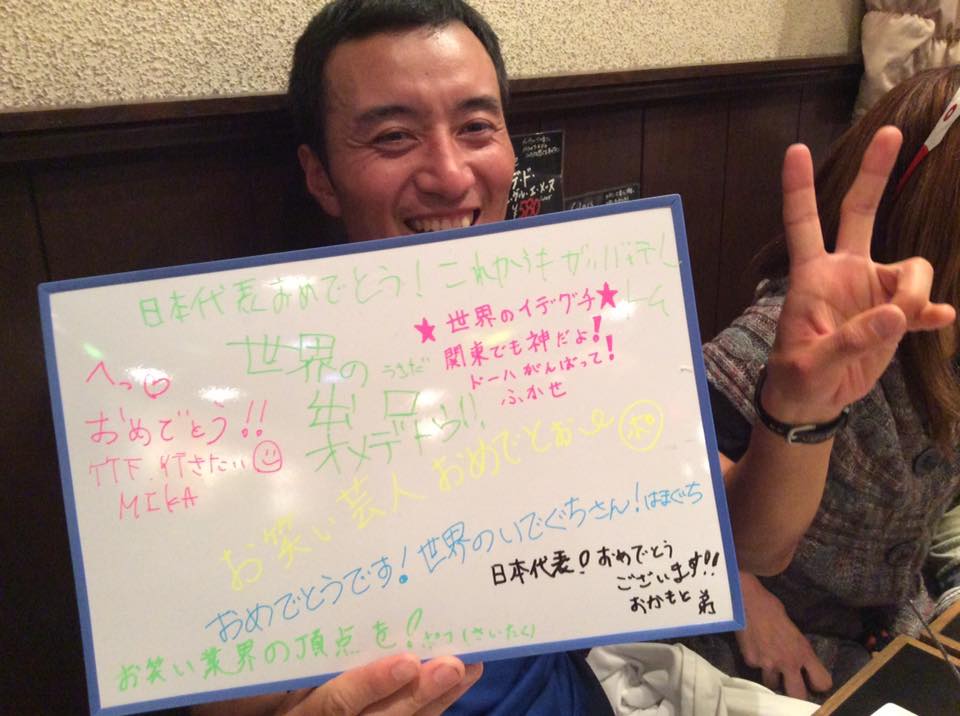 日本代表おめでとう！これからもガンバッテ！
トム
★世界のイデグチ★
関東でも神だよ！
ドーハがんばって！
ふかせ
世界の
出口
オメデトウ!!
へっ
おめでとう!!
竹下、行きたい
MIKA
お笑い芸人おめでとぉー
ポ
おめでとうです！世界のいでぐちさん！はまぐち
日本代表！おめでとう
ございます!!
おかもと弟
お笑い業界の頂点を！
¥580